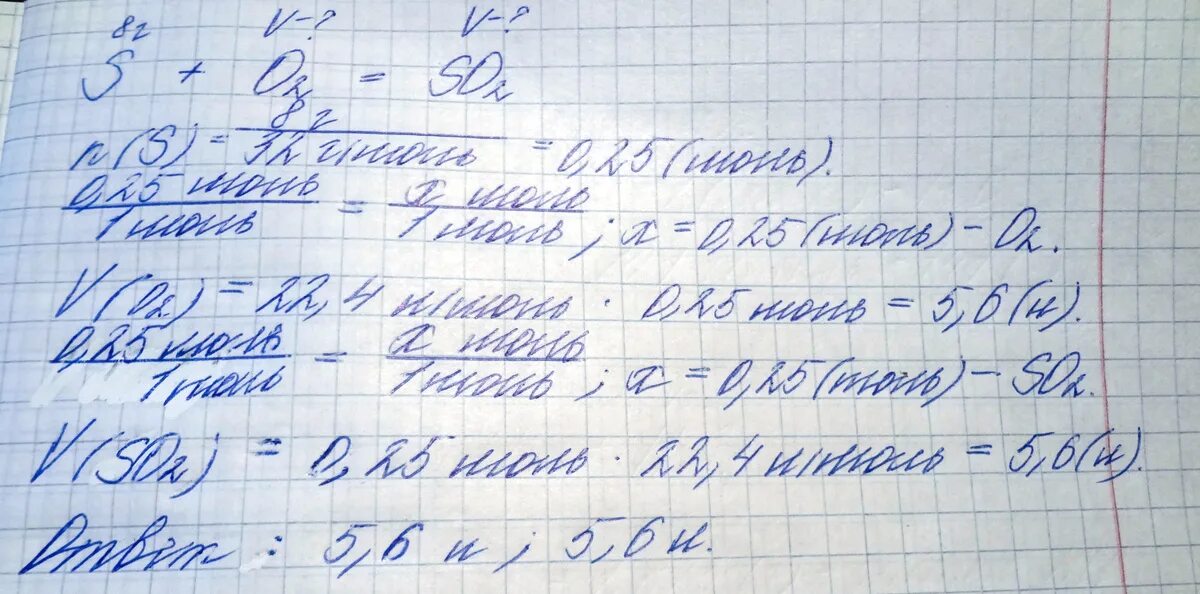 8г V-? V-?
S + O₂ = SO₂
n(S) = 8 г / 32 г/моль = 0,25 (моль).
0,25 моль / 1 моль = x моль / 1 моль ; x = 0,25 (моль) - O₂.
V(O₂) = 22,4 л/моль · 0,25 моль = 5,6 (л).
0,25 моль / 1 моль = x моль / 1 моль ; x = 0,25 (моль) - SO₂.
V(SO₂) = 0,25 моль · 22,4 л/моль = 5,6 (л).
Ответ : 5,6 л ; 5,6 л.